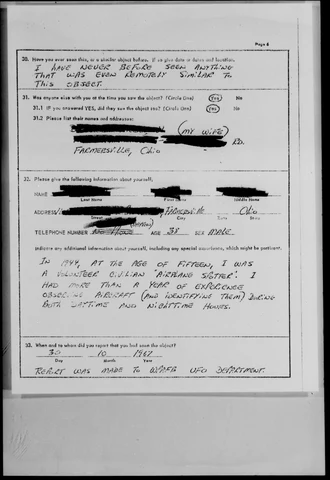 Page 8
30. Have you ever seen this, or a similar object before. If so give date or dates and location.
I HAVE NEVER BEFORE SEEN ANYTHING
THAT WAS EVEN REMOTELY SIMILAR TO
THIS OBJECT.
31. Was anyone else with you at the time you saw the object? (Circle One) Yes No
31.1 IF you answered YES, did they see the object too? (Circle One) Yes No
31.2 Please list their names and addresses:
(MY WIFE)
RD.
FARMERSVILLE, OHIO
32. Please give the following information about yourself:
NAME
Last Name First Name Middle Name
ADDRESS FARMERSVILLE OHIO
Street City Zone State
TELEPHONE NUMBER AGE 38 SEX MALE
Indicate any additional information about yourself, including any special experience, which might be pertinent.
IN 1944, AT THE AGE OF FIFTEEN, I WAS
A VOLUNTEER CIVILIAN 'AIRPLANE SPOTTER'. I
HAD MORE THAN A YEAR OF EXPERIENCE
OBSERVING AIRCRAFT (AND IDENTIFYING THEM) DURING
BOTH DAYTIME AND NIGHTTIME HOURS.
33. When and to whom did you report that you had seen the object?
30 10 1967
Day Month Year
REPORT WAS MADE TO WPAFB UFO DEPARTMENT.